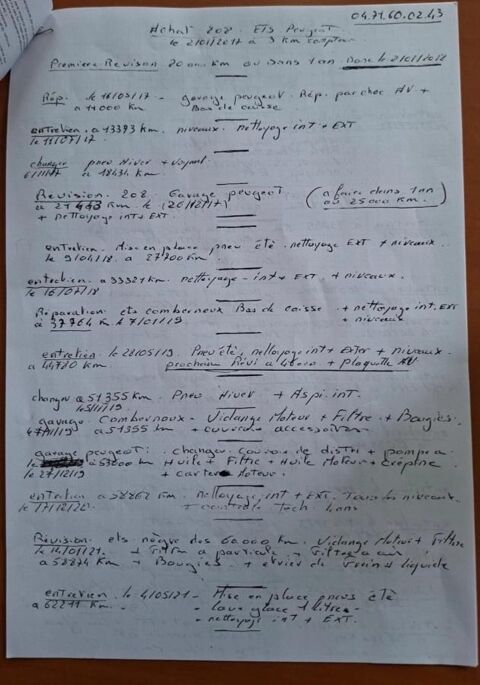 04.71.60.02.43
Achat 208. ETS Peugeot
le 2/01/2017 à 3 Km compteur
Première Revison. 20 000 Km ou dans 1 an. Donc le 2/01/2018
Rép. le 16/03/17 - garage peugeot. Rép. par choc AV +
à 11000 Km Bas de caisse
entretien. à 13393 Km. niveaux. nettoyage int + EXT
le 11/07/17
changer pneu Hiver +
6/11/17 à 18434 Km.
Revision. 208. Garage peugeot. (a faire dans 1 an
à 21443 Km. le (20/12/17) ou 25000 Km.)
+ nettoyage int + EXT.
entretien. Mise en place pneu été. nettoyage EXT + niveaux.
le 9/04/18. à 27700 Km.
entretien. à 33321 Km. nettoyage - int + EXT. + niveaux.
le 16/07/18
Réparation ets combernoux Bas de caisse + nettoyage int. EXT
à 37764 Km. le 7/01/19 + niveaux
entretien. le 28/05/19. Pneu été, nettoyage int + Exter + niveaux.
à 44720 Km. prochaine Révi à 46000 + plaquette AV
changer à 51355 Km. Pneu Hiver + Aspi. int.
garage. Combernoux - Vidange Moteur + Filtre + Bougies.
4/11/19 à 51355 Km + courroie accessoires
garage peugeot: changer courroie de distri + pompe a
le à 53000 Km Huile + Filtre + Huile Moteur + crépine
27/12/19 + carter Moteur.
entretien à 58262 Km. nettoyage int + EXT. Tous les niveaux
le 17/12/20. + controle Tech. 4 ans
Révision. ets nègre des 60000 Km. Vidange Moteur + Filtre
le 14/01/21. + Filtre a particule + Filtre a air
à 58874 Km + Bougies + étrier de Freins + liquide
entretien. le 4/05/21 - Mise en place pneus été
à 62211 Km. - lave glace 1 litre -
- nettoyage int + EXT.